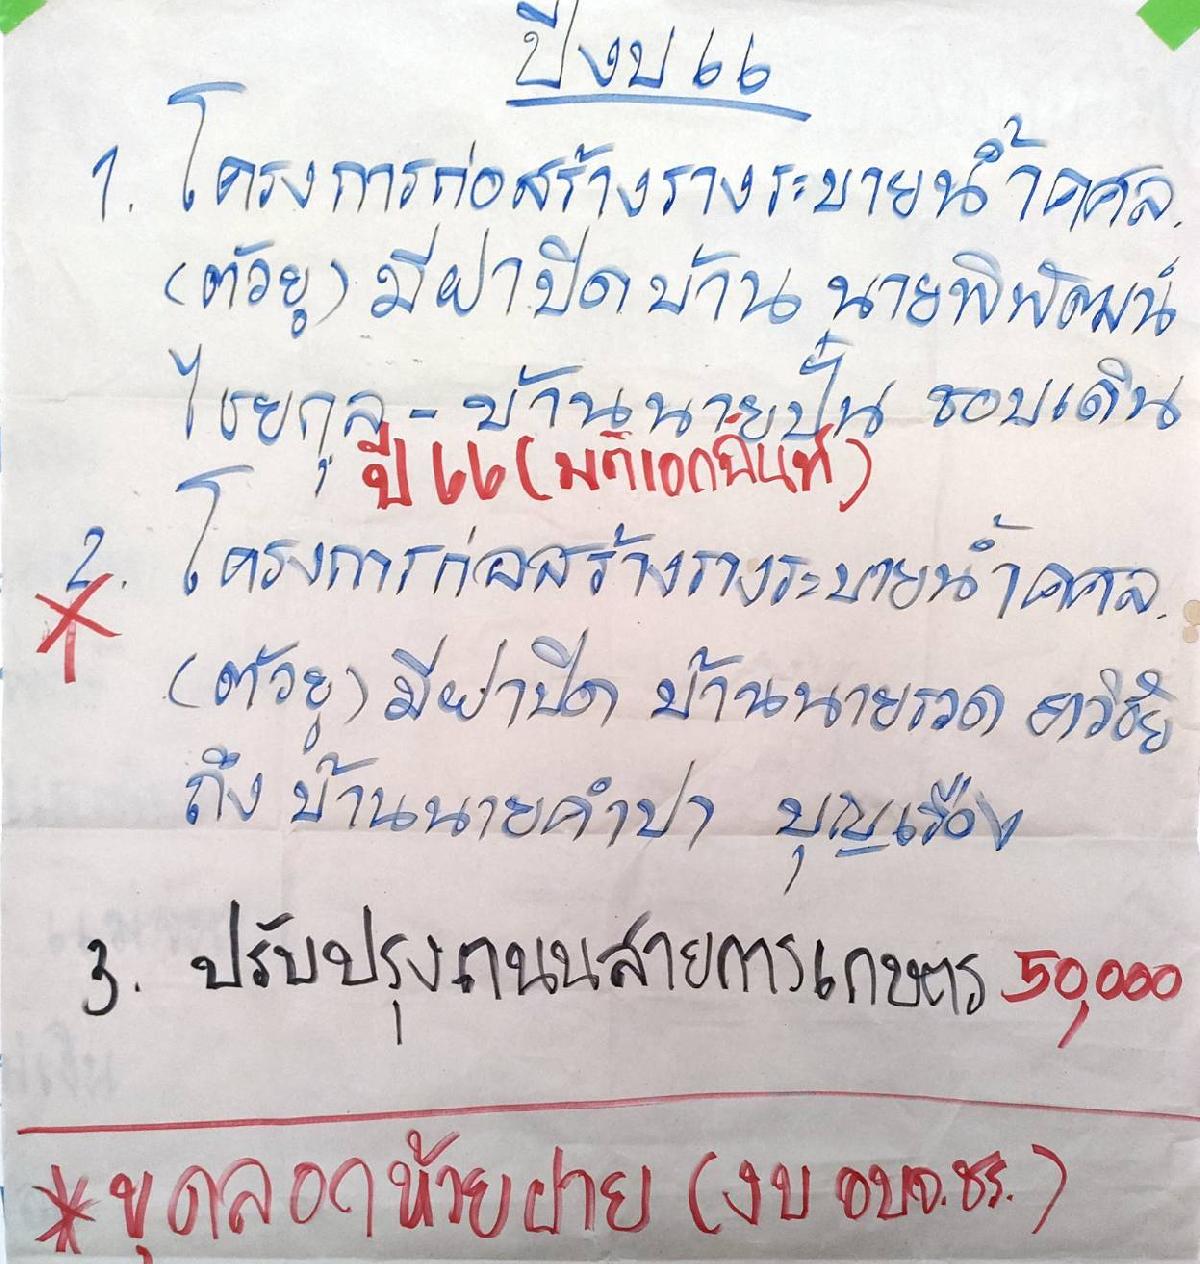 ปีงบ 66
1. โครงการก่อสร้างรางระบายน้ำคศล.
(ตัวยู) มีฝาปิด บ้าน นายพิพัฒน์
ไชยกุล - บ้านนายปั๋น ชอบเดิน
ปี 66 (มติเอกฉันท์)
2. โครงการก่อสร้างรางระบายน้ำคศล.
(ตัวยู) มีฝาปิด บ้านนายรวด
ถึง บ้านนายคำปา บุญเรือง
3. ปรับปรุงถนนสายการเกษตร 50,000
* ขุดลอกห้วยฝาย (งบ อบจ.ชร.)